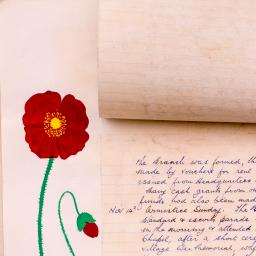 the Branch was formed, th
made by Vouchers for rent
issued from Headquarters
many cash grants from o
funds had also been made
Nov 14th Armistice Sunday. The
Standard & escorts parade
in the morning & attended
Chapel, after a short cere
village War Memorial, wh